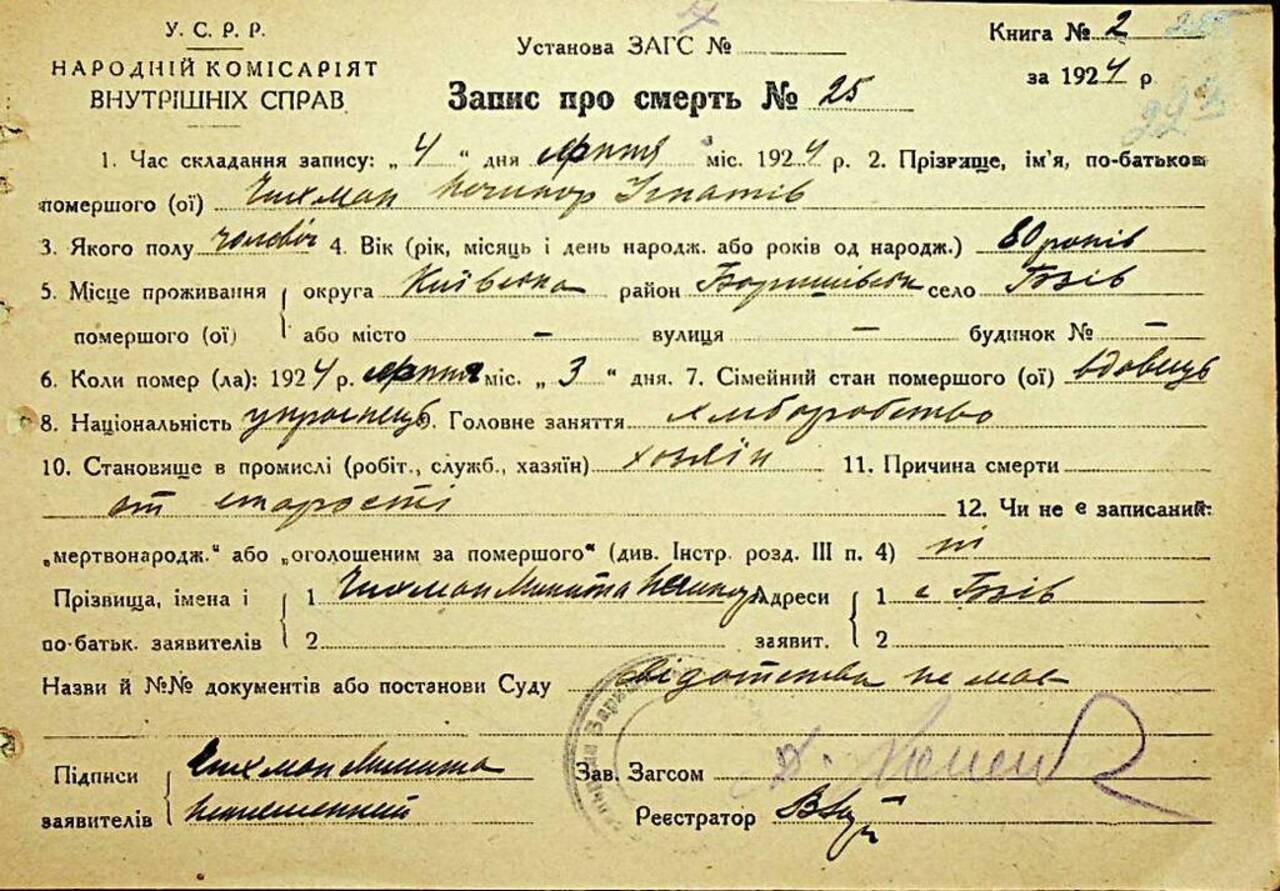 У. С. Р. Р.
НАРОДНІЙ КОМІСАРІЯТ
ВНУТРІШНІХ СПРАВ
Установа ЗАГС №
Книга № 2
за 1924 р
Запис про смерть № 25
223
1. Час складання запису: „ 4 “ дня липня міс. 1924 р. 2. Прізвище, ім'я, по-батькові
помершого (ої) Чихман Ничипор Ігнатів
3. Якого полу чоловіч 4. Вік (рік, місяць і день народж. або років од народж.) 80 років
5. Місце проживання помершого (ої) округа Київська район Баришівськ село Бзів
або місто — вулиця — будинок № —
6. Коли помер (ла): 1924 р. липня міс. „ 3 “ дня. 7. Сімейний стан помершого (ої) вдовець
8. Національність украінець 9. Головне заняття хліборобство
10. Становище в промислі (робіт., служб., хазяїн) хозяін 11. Причина смерти
от старості 12. Чи не є записаний:
„мертвонародж.“ або „оголошеним за помершого“ (див. Інстр. розд. III п. 4) ні
Прізвища, імена і по-батьк. заявителів 1 Чихман Микита Ничипор Адреси заявит. 1 с Бзів
2 2
Назви й №№ документів або постанови Суду відомства не має
Підписи заявителів Чихман Микита
неписьменний
Зав. Загсом
Реєстратор